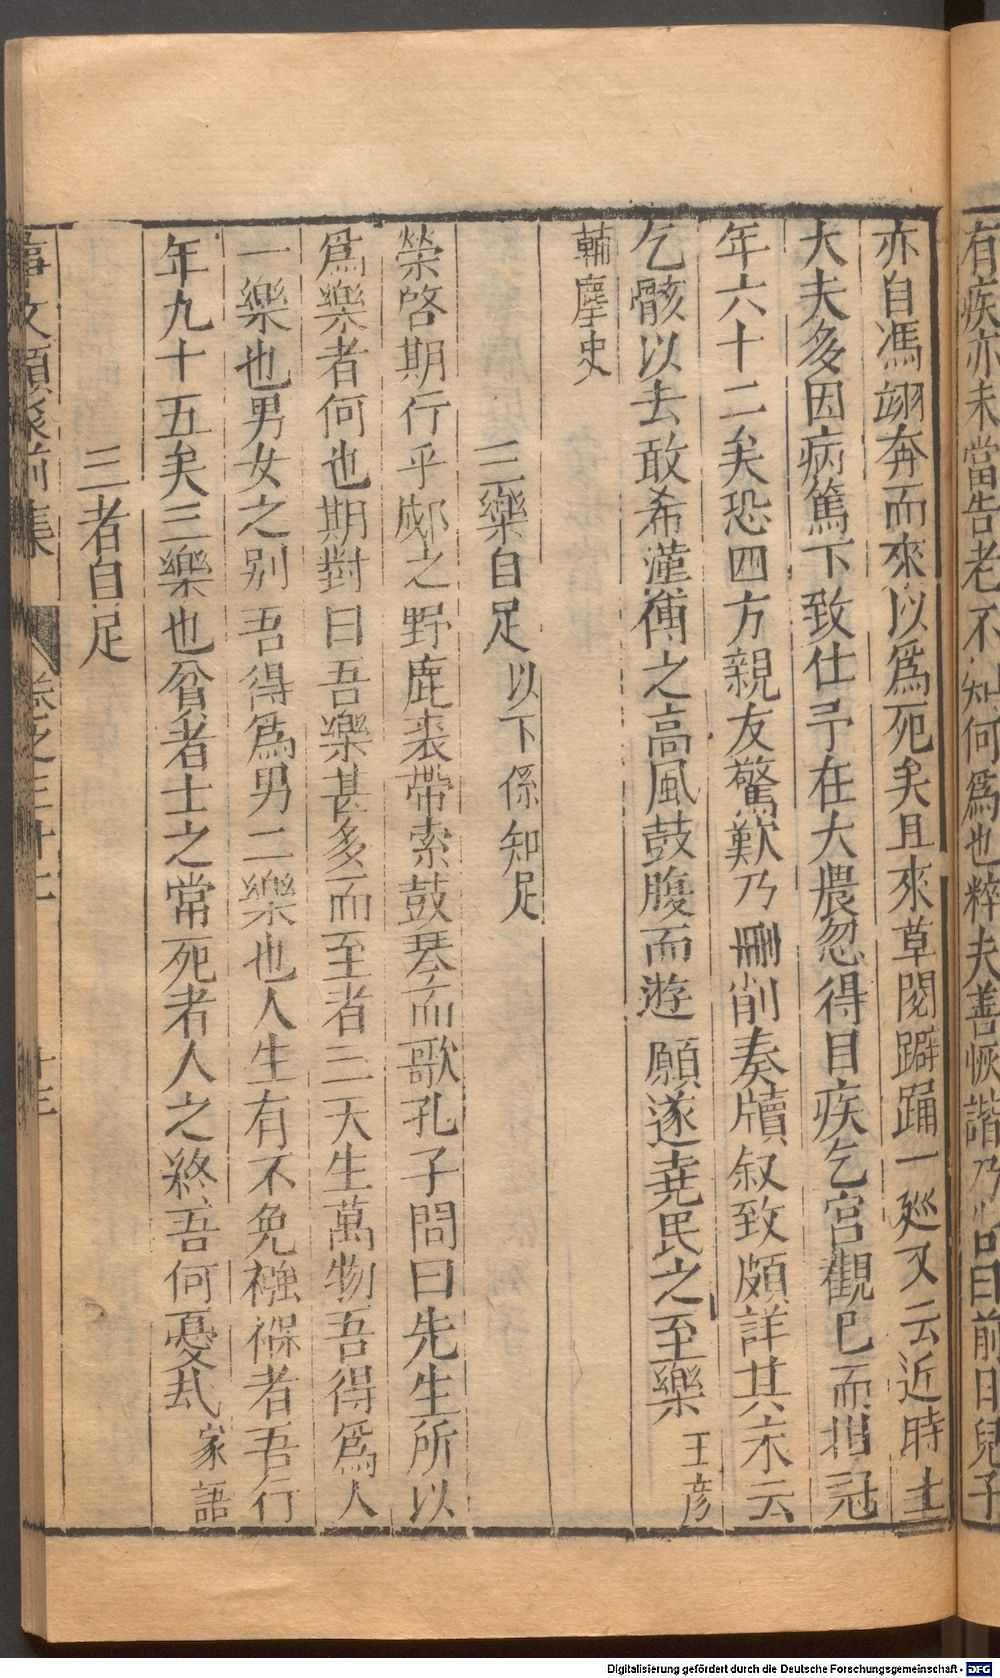 有疾亦未當告老不知何爲也粹夫善恢諧乃曰前日兒子
亦自馮翊奔而來以爲死矣且來草閱躃踊一廵又云近時士
大夫多因病篤下致仕予在大農忽得目疾乞宮觀已而掛冠
年六十二矣恐四方親友驚歎乃刪削奏牘叙致頗詳其末云
乞骸以去敢希漢傅之高風鼓腹而遊願遂堯民之至樂王彦
輔麈史
三樂自足以下係知足
榮啓期行乎郕之野鹿裘帶索鼓琴而歌孔子問曰先生所以
爲樂者何也期對曰吾樂甚多而至者三天生萬物吾得爲人
一樂也男女之别吾得爲男二樂也人生有不免襁褓者吾行
年九十五矣三樂也貧者士之常死者人之終吾何憂㢤家語
三者自足
事文類聚前集 卷之三十二 十三
Digitalisierung gefördert durch die Deutsche Forschungsgemeinschaft - DFG